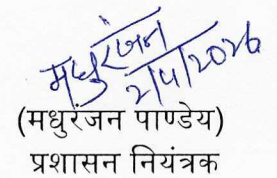 मधुरंजन
2/4/2026
(मधुरंजन पाण्डेय)
प्रशासन नियंत्रक